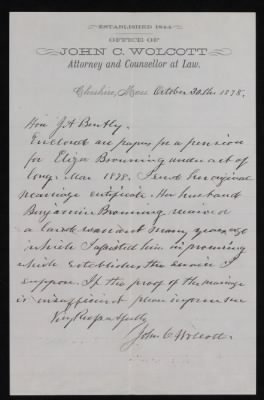 ESTABLISHED 1844
OFFICE OF
JOHN C. WOLCOTT,
Attorney and Counsellor at Law.
Cheshire, Mass October 30th 1878.
Hon J. A. Bently.
Enclosed are papers for a pension
for Eliza Browning under act of
Cong. Mar 1878. I send her original
marriage certificate. Her husband
Benjamin Browning received
a land warrant many years ago
which I assisted him in procuring
which establishes the service I
suppose. If the proof of the marriage
is insufficient please inform me
Very Respectfully
John C Wolcott